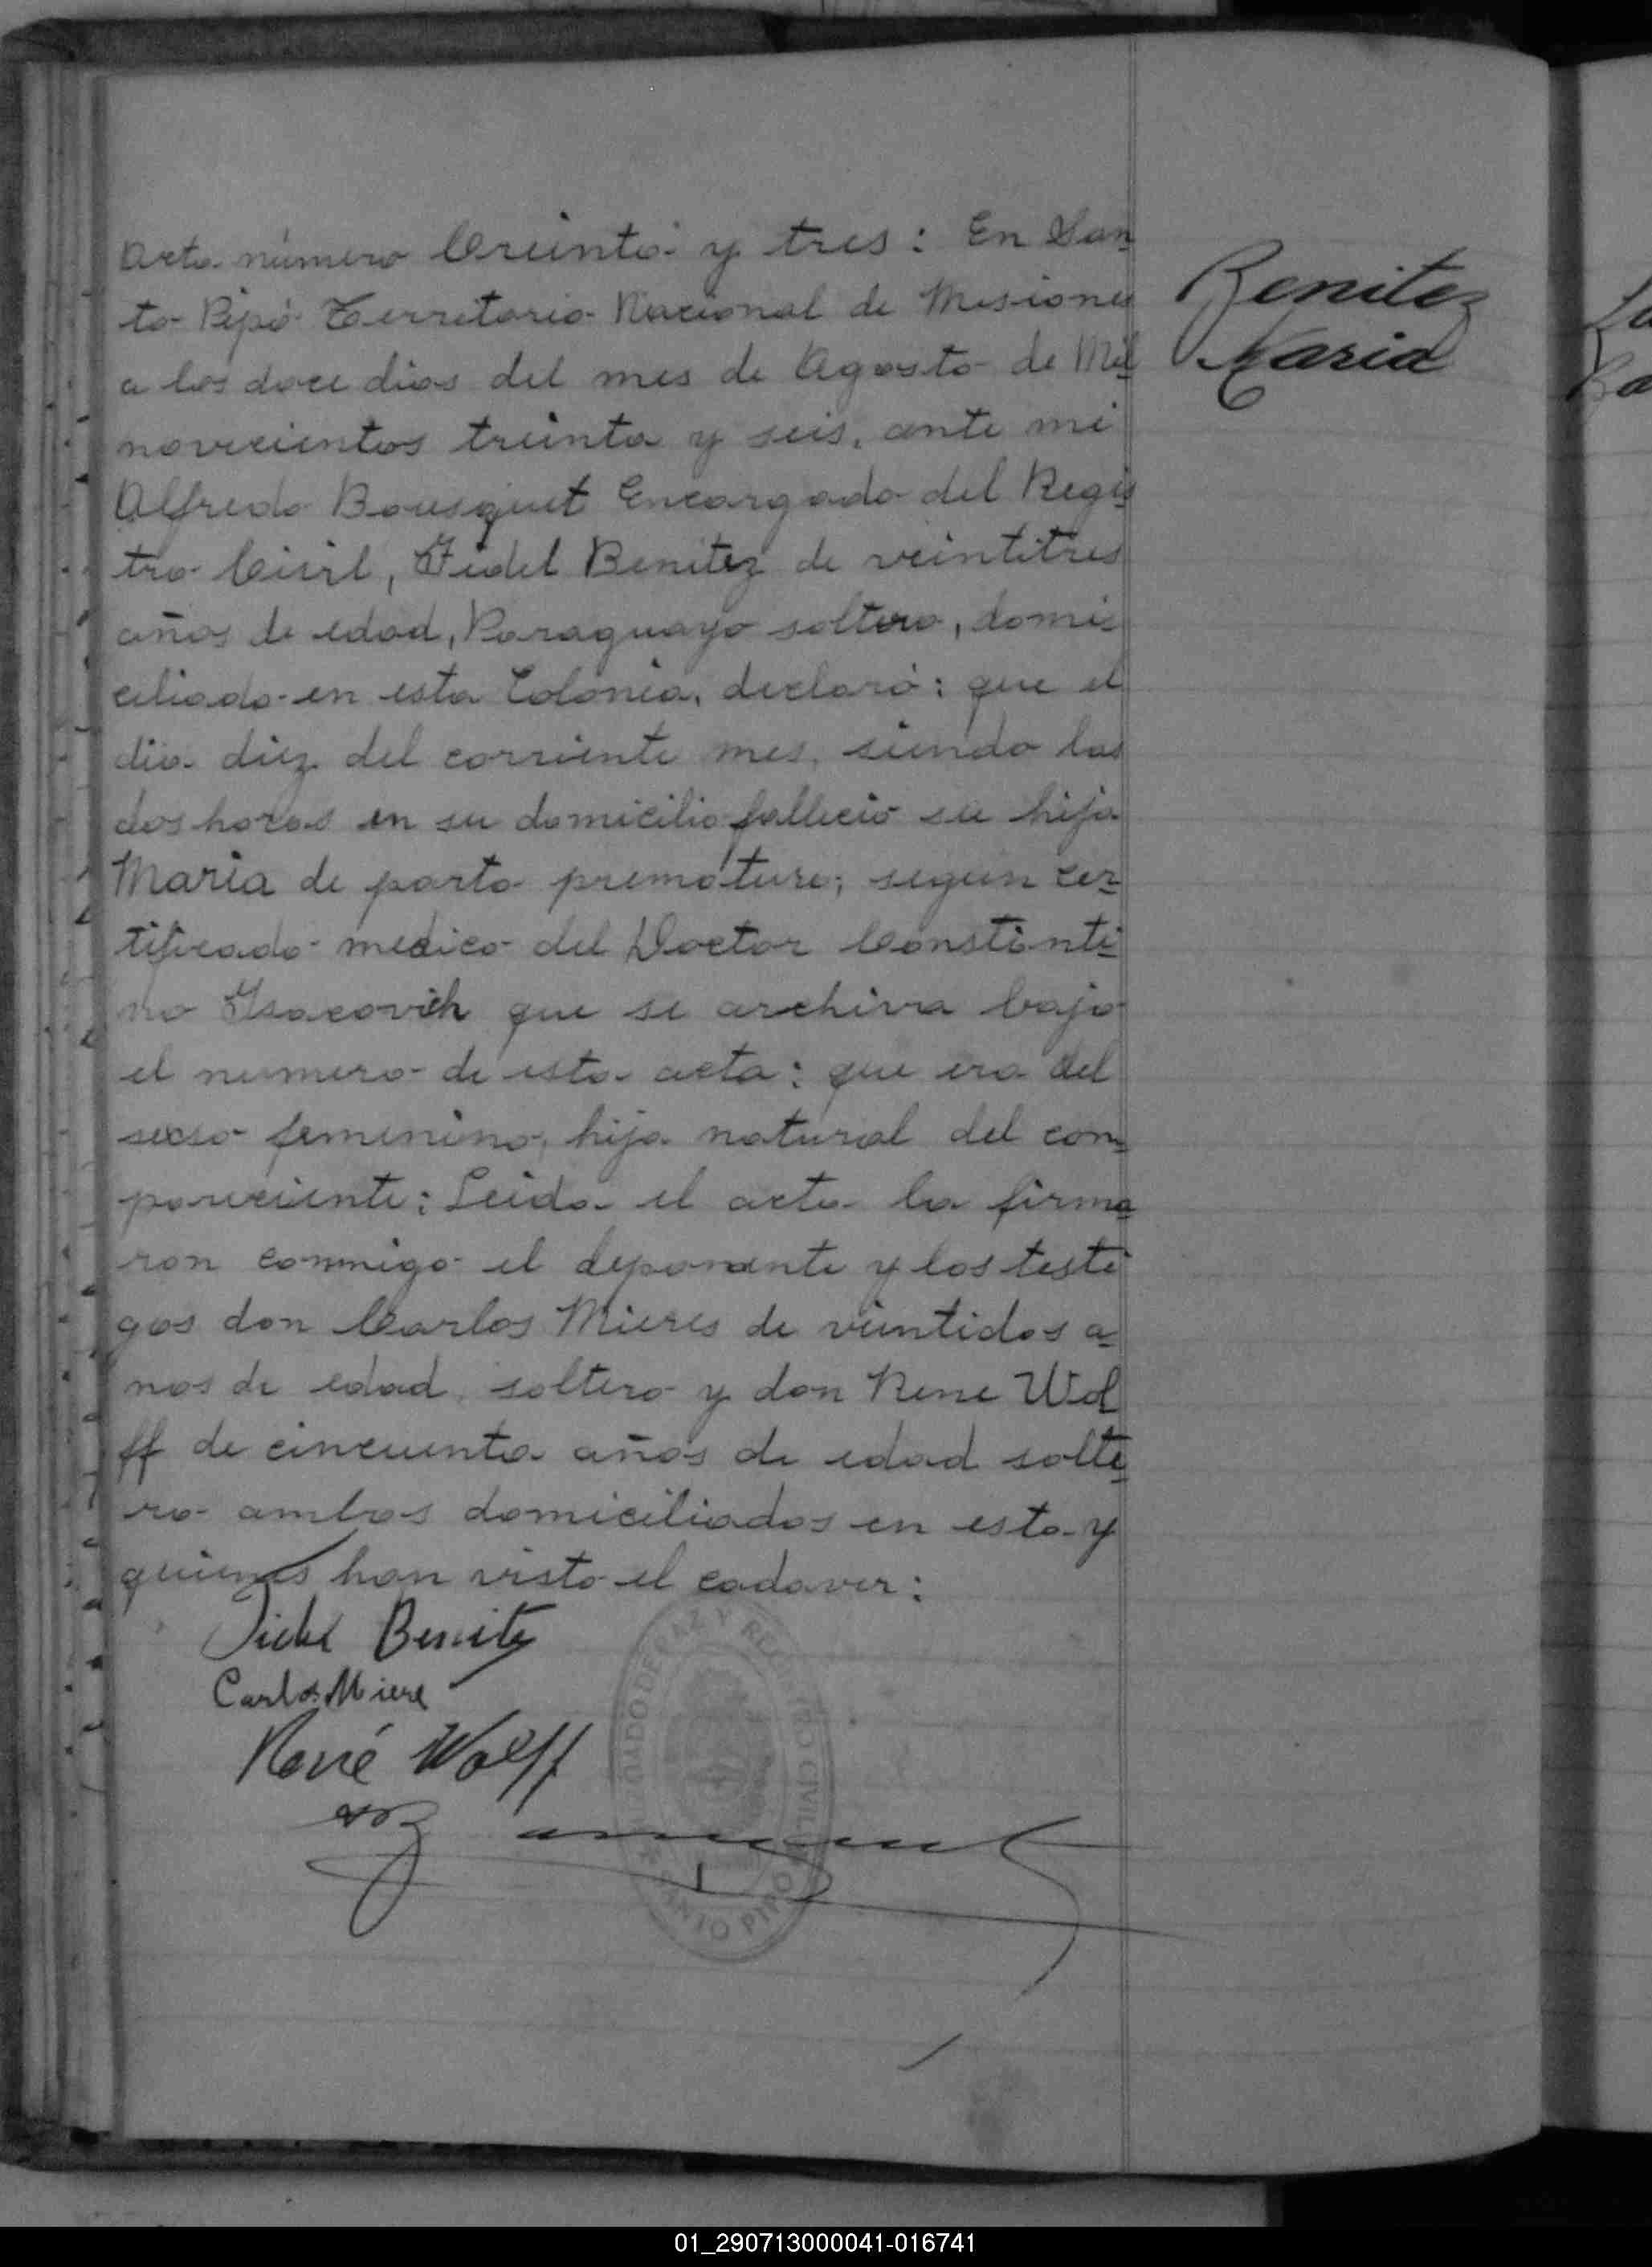 Acta número Treinta y tres: En San
to Pipó Territorio Nacional de Misiones
a los doce dias del mes de Agosto de Mil
novecientos treinta y seis, ante mi
Alfredo Bousquet Encargado del Regis
tro Civil, Fidel Benitez de veintitres
años de edad, Paraguayo soltero, domi
ciliado en esta Colonia, declaró: que el
dia diez del corriente mes, siendo las
dos horas en su domicilio fallecio su hija
Maria de parto prematuro; segun cer
tificado medico del Doctor Constanti
no Isacovich que se archiva bajo
el numero de esta acta: que era del
sexso femenino, hija natural del com
pareciente: Leida el acta la firma
ron conmigo el deponente y los testi
gos don Carlos Mieres de veintidos a
nos de edad, soltero y don Rene Wol
ff de cincuenta años de edad solte
ro ambos domiciliados en esta y
quienes han visto el cadaver:
Benitez
Maria
Fidel Benitez
Carlos Miere
René Wolff
JUZGADO DE PAZ Y REGISTRO CIVIL
SANTO PIPO
01_290713000041-016741